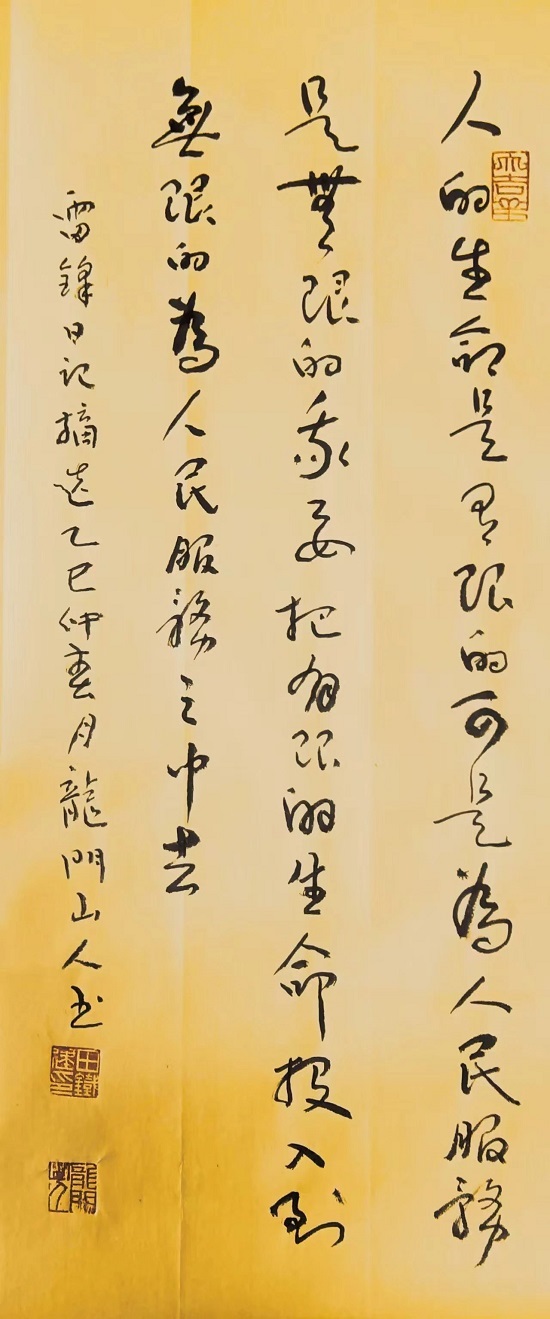 人的生命是有限的可是為人民服務
是無限的我要把有限的生命投入到
無限的為人民服務之中去
雷鋒日記摘選乙巳仲春月龍門山人书